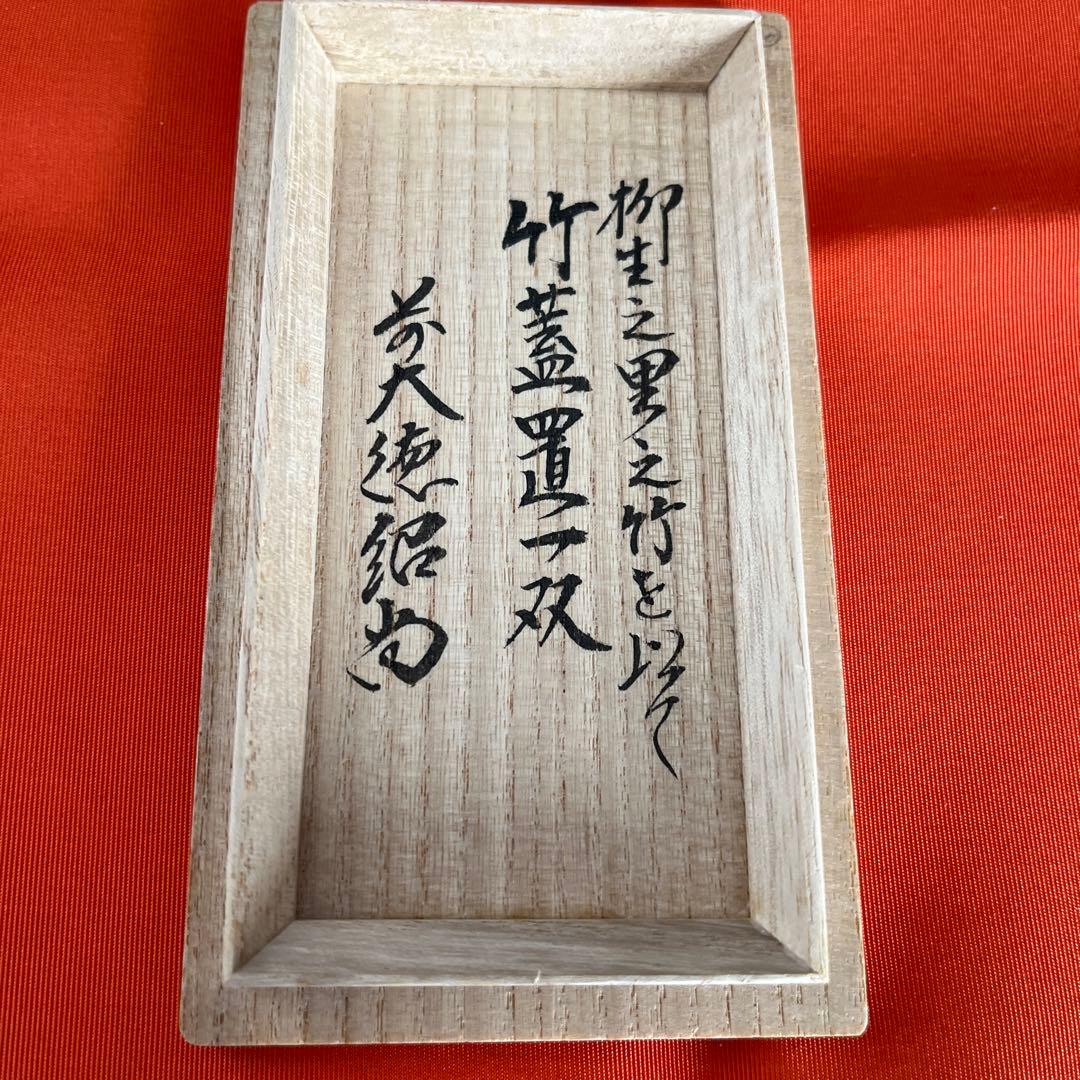 柳生之里之竹を以て
竹蓋置一双
前大徳紹尚